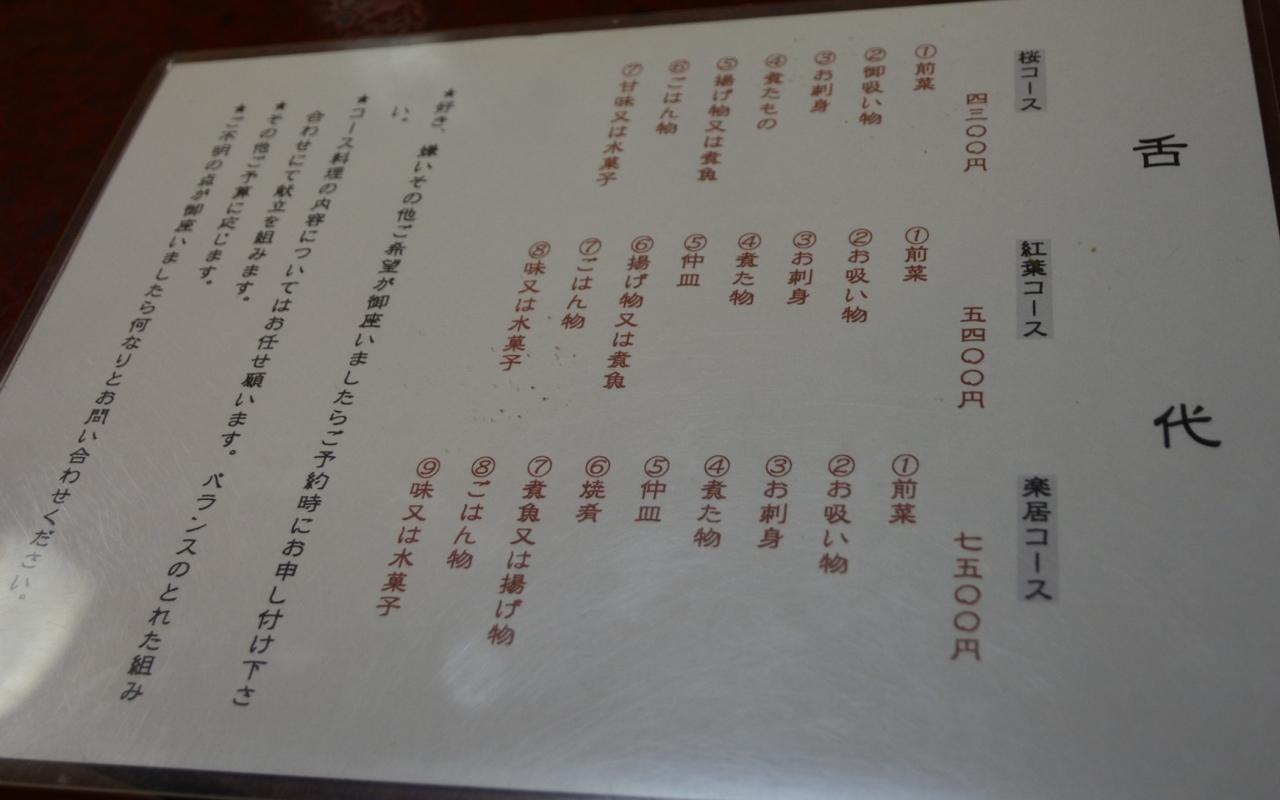 舌代
桜コース
四三〇〇円
①前菜
②御吸い物
③お刺身
④煮たもの
⑤揚げ物又は煮魚
⑥ごはん物
⑦甘味又は水菓子
紅葉コース
五四〇〇円
①前菜
②お吸い物
③お刺身
④煮た物
⑤仲皿
⑥揚げ物又は煮魚
⑦ごはん物
⑧味又は水菓子
楽居コース
七五〇〇円
①前菜
②お吸い物
③お刺身
④煮た物
⑤仲皿
⑥焼肴
⑦煮魚又は揚げ物
⑧ごはん物
⑨味又は水菓子
★好き、嫌いその他ご希望が御座いましたらご予約時にお申し付け下さ
い。
★コース料理の内容についてはお任せ願います。バランスのとれた組み
合わせにて献立を組みます。
★その他ご予算に応じます。
★ご不明の点が御座いましたら何なりとお問い合わせください。